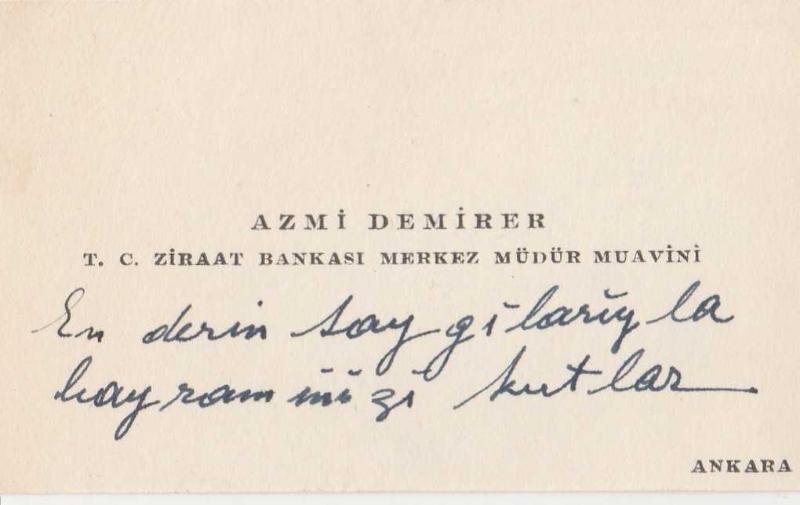 AZMİ DEMİRER
T. C. ZİRAAT BANKASI MERKEZ MÜDÜR MUAVİNİ
En derin saygılarıyla
bayramınızı kutlar
ANKARA